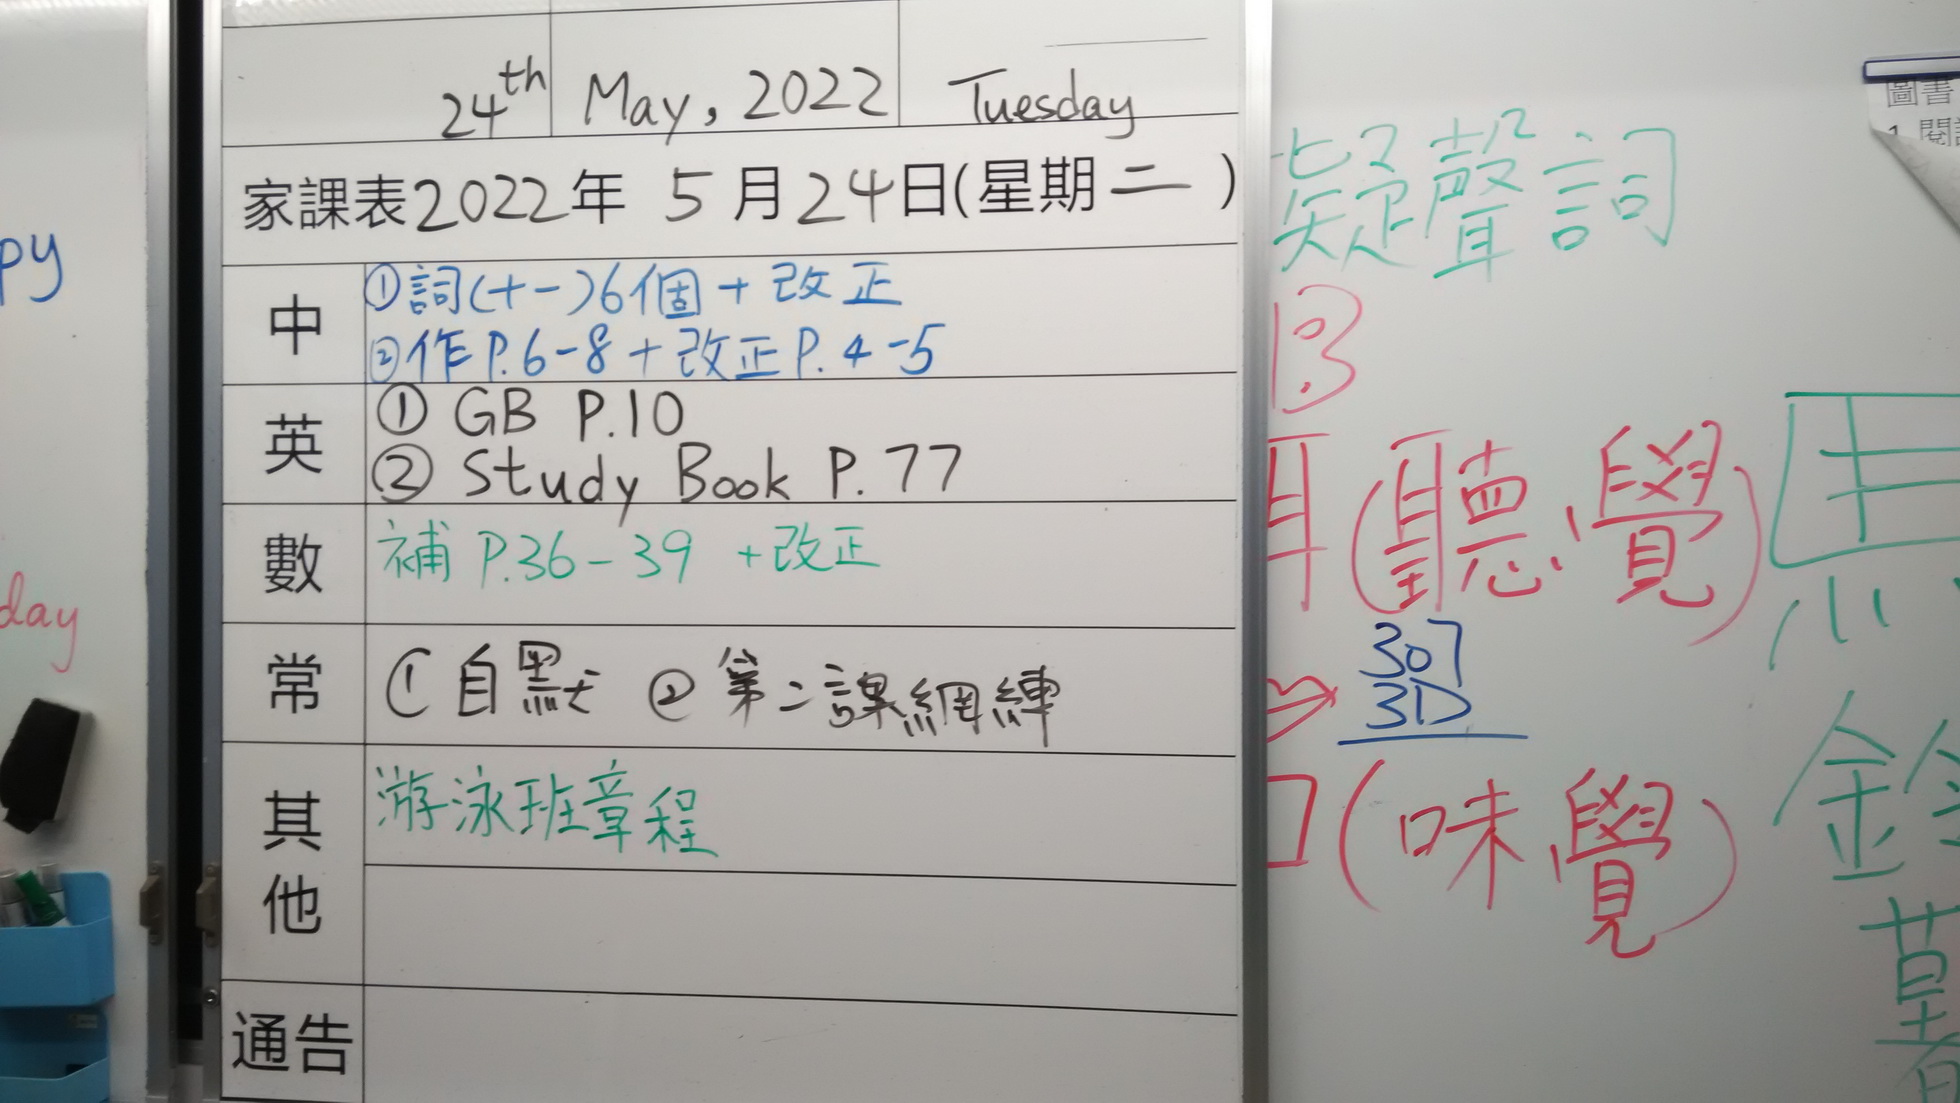 24th May, 2022 Tuesday
家課表2022年 5月24日(星期二 )
中
①詞(十一)6個+改正
②作P.6-8+改正P.4-5
英
① GB P.10
② Study Book P.77
數
補 P.36-39 +改正
常
① 自默 ② 第二課網練
其他
游泳班章程
通告
py
day
擬聲詞
耳(聽覺)
307
3D
口(味覺)
圖書
1. 閱